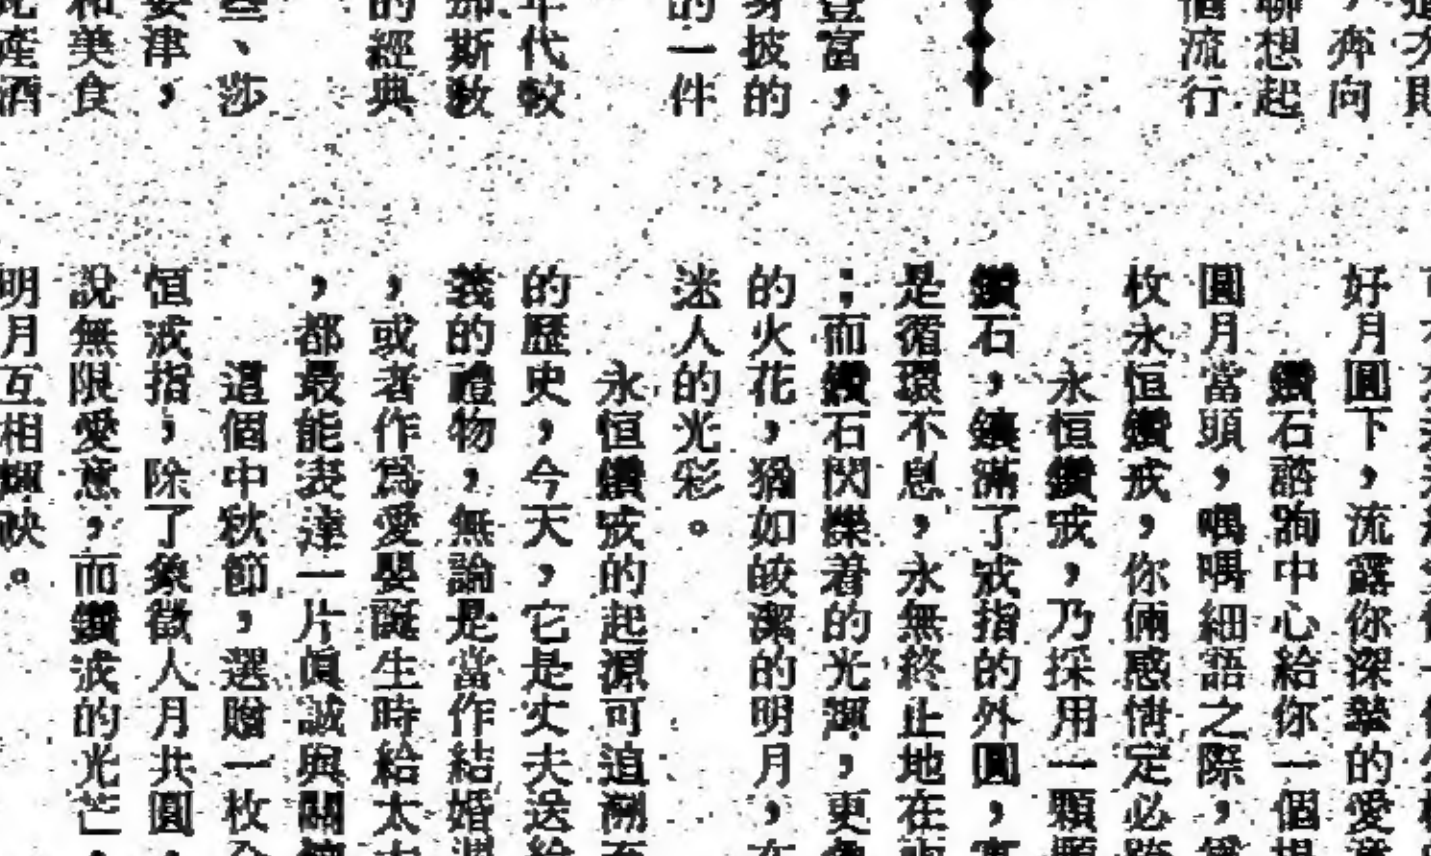 聯想起
奔向
流行
登富，
身披的
的一件
年代
那斯
的經典
些、莎
津，
和美食
產酒
好月圓下，流露你深摯的愛意
鑽石諮詢中心給你一個
圓月當頭，喁喁細語之際，
枚永恒鑽戒，你倆感情定必
永恒鑽戒，乃採用一顆顆
鑽石，鑲滿了戒指的外圓，
是循環不息，永無終止地在
；而鑽石閃爍着的光，更
的火花，猶如皎潔的明月，
迷人的光彩。
永恒鑽戒的起源可追溯至
的歷史，今天，它是丈夫送給
的禮物，無論是當作結婚
，或者作為愛嬰誕生時給太太
，都最能表達一片真誠與關懷
這個中秋節，選贈一枚
恒戒指，除了象徵人月共圓，
說無限愛意，而鑽戒的光芒，
明月互相輝映。